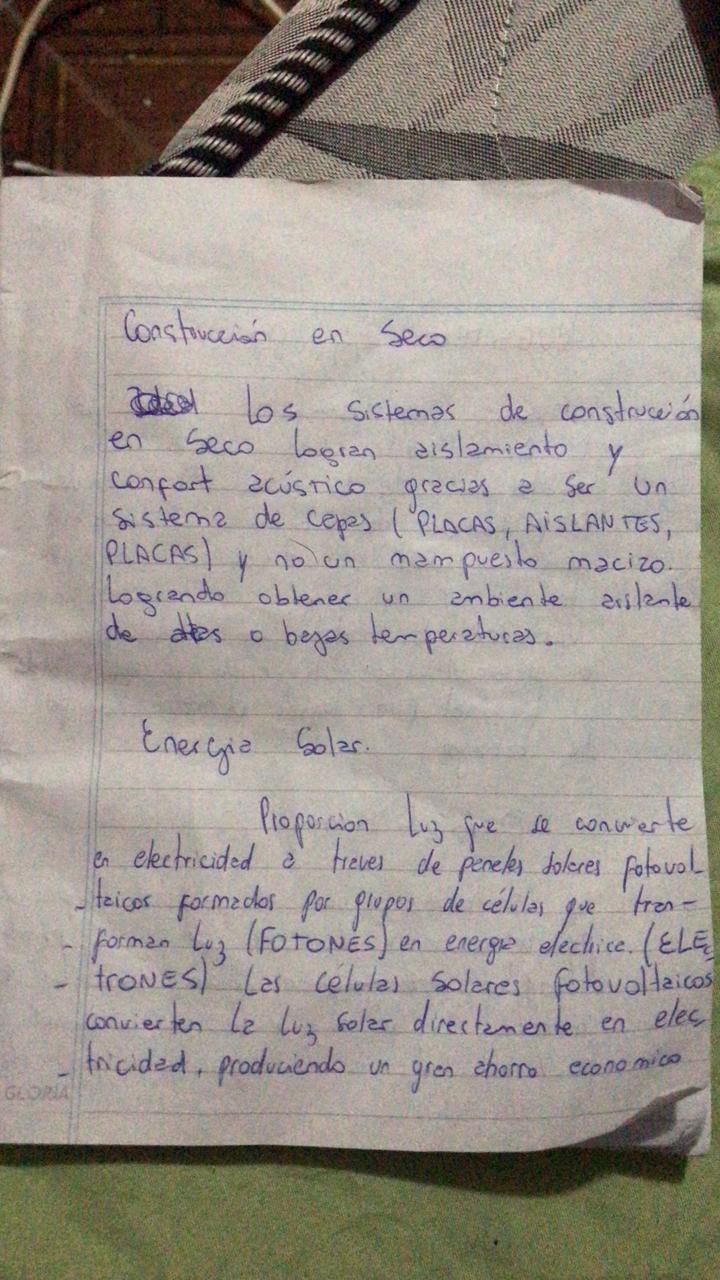 Construcción en Seco
Los sistemas de construcción
en Seco logran aislamiento y
confort acústico gracias a ser un
sistema de capas (PLACAS, AISLANTES,
PLACAS) y no un mampuesto macizo.
Logrando obtener un ambiente aislante
de altas o bajas temperaturas.
Energia Solar.
Proporcion luz que se convierte
en electricidad a traves de paneles solares fotovol
-taicos formados por grupos de células que tran-
- forman luz (FOTONES) en energia electrica. (ELEC
- tRONES) Las células solares fotovoltaicos
convierten la luz solar directamente en elec
- tricidad, produciendo un gran ahorro economico
GLORIA